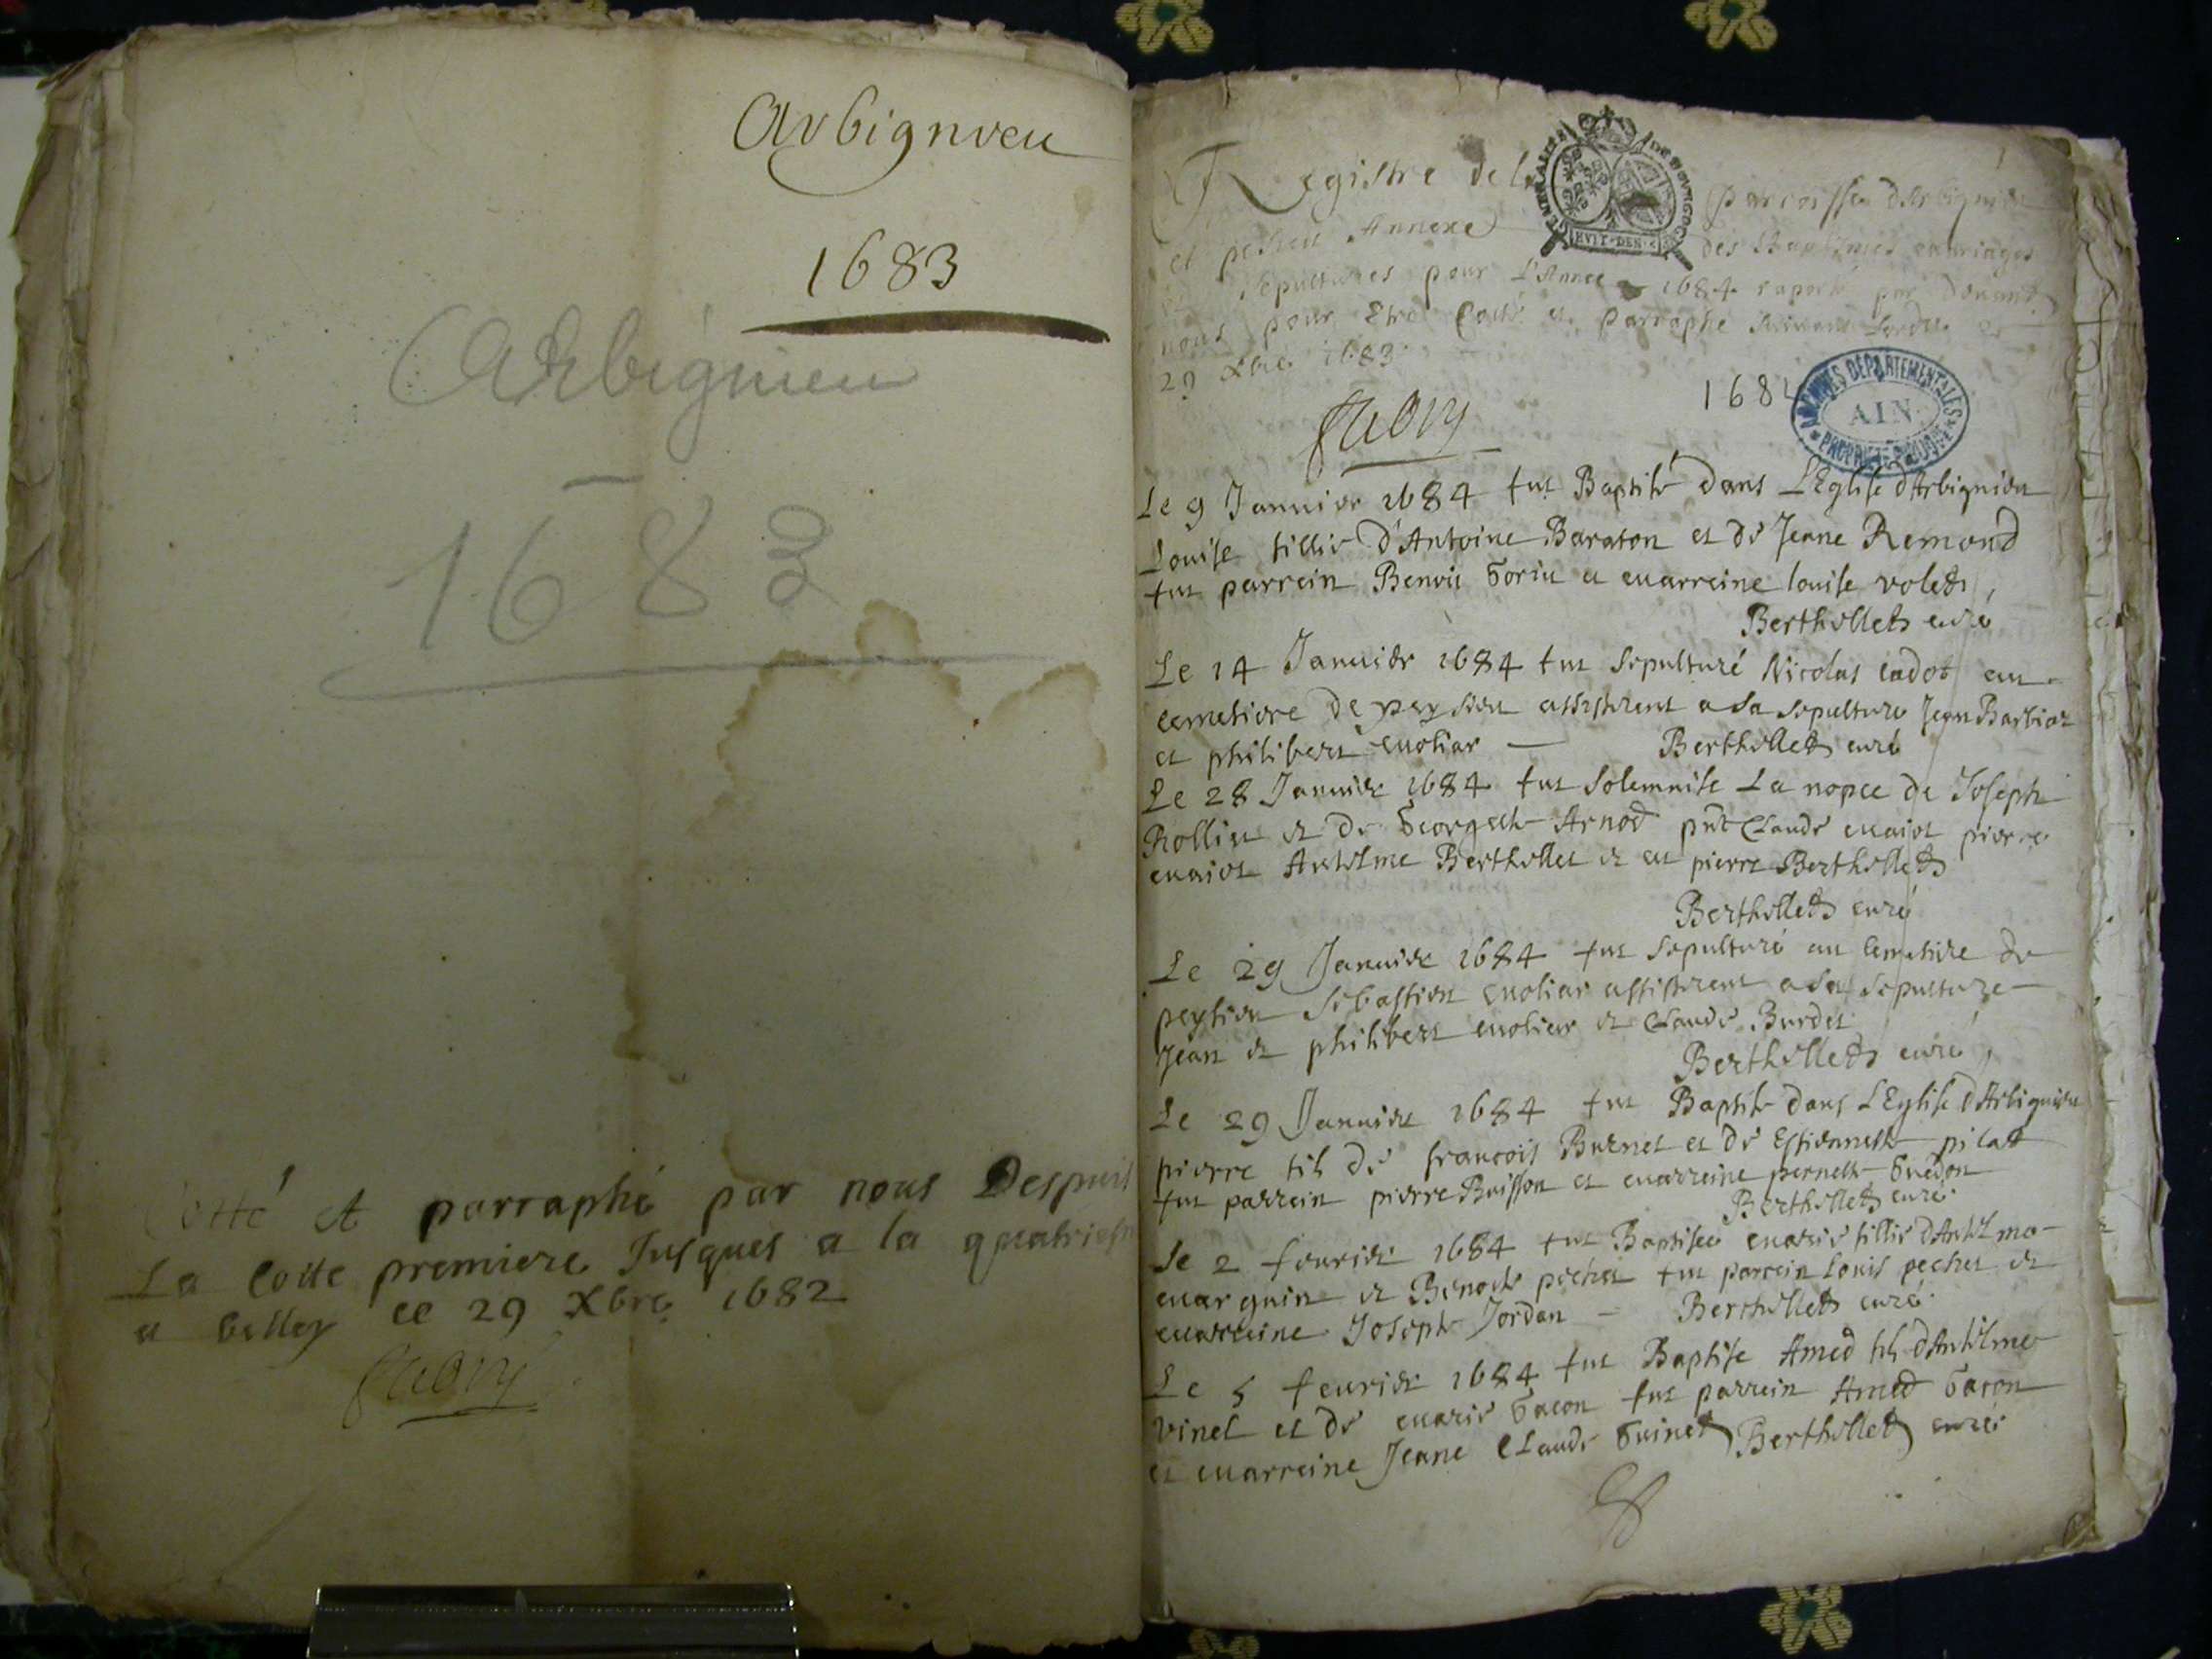 Arbignieu
1683
Arbignieu
1683
Cotté et parraphé par nous Despuis
La Cotte premiere Jusques a la quatriesm
a belley ce 29 Xbre 1682
Registre de la parroisse d'Arbignieu
et Annexe des Baptimes mariages
sepultures pour L'Année 1684 raporté par devant
nous pour Etre Cotté et parraphé suivant Lordre
29 Xbre 1683
HVIT DEN
1684
ARCHIVES DÉPARTEMENTALES
AIN
PROPRIÉTÉ PUBLIQUE
Le 9 Januier 1684 fut Baptisé dans L'Eglise d'Arbignieu
Louise fillie d'Antoine Baraton et de Jeane Remond
fut parrein Benoit Gorin et marreine louise volet
Berthollet curé
Le 14 Januier 1684 fut sepulturé Nicolas cadot au
cemetiere de peysieu assisterent a sa sepulture Jean Barbier
et philibert moliar Berthollet curé
Le 28 Januier 1684 fut solemnise La nopce de Joseph
Rollin et de Georgette Arnod pnt Claude maiot pierre
maiot Antelme Berthollet et pierre Berthollet
Berthollet curé
Le 29 Januier 1684 fut sepulturé au cemetiere de
peysieu sebastien moliar assisterent a sa sepulture
Jean et philibert moliar et Claude Burdet
Berthollet curé
Le 29 Januier 1684 fut Baptisé dans L'Eglise d'Arbignieu
pierre fils de francois Burnet et de Estiennette pilat
fut parrein pierre Buisson et marreine pernette Guedon
Berthollet curé
Le 2 feurier 1684 fut Baptisée marie fillie d'Antelme
marguin et Benoite pechet fut parrein Louis pechet et
marreine Josephte Jordan Berthollet curé
Le 5 feurier 1684 fut Baptise Amed fils d'Antelme
vinet et de marie Gacon fut parrein Amed Gacon
et marreine Jeane Claude Guinet Berthollet curé